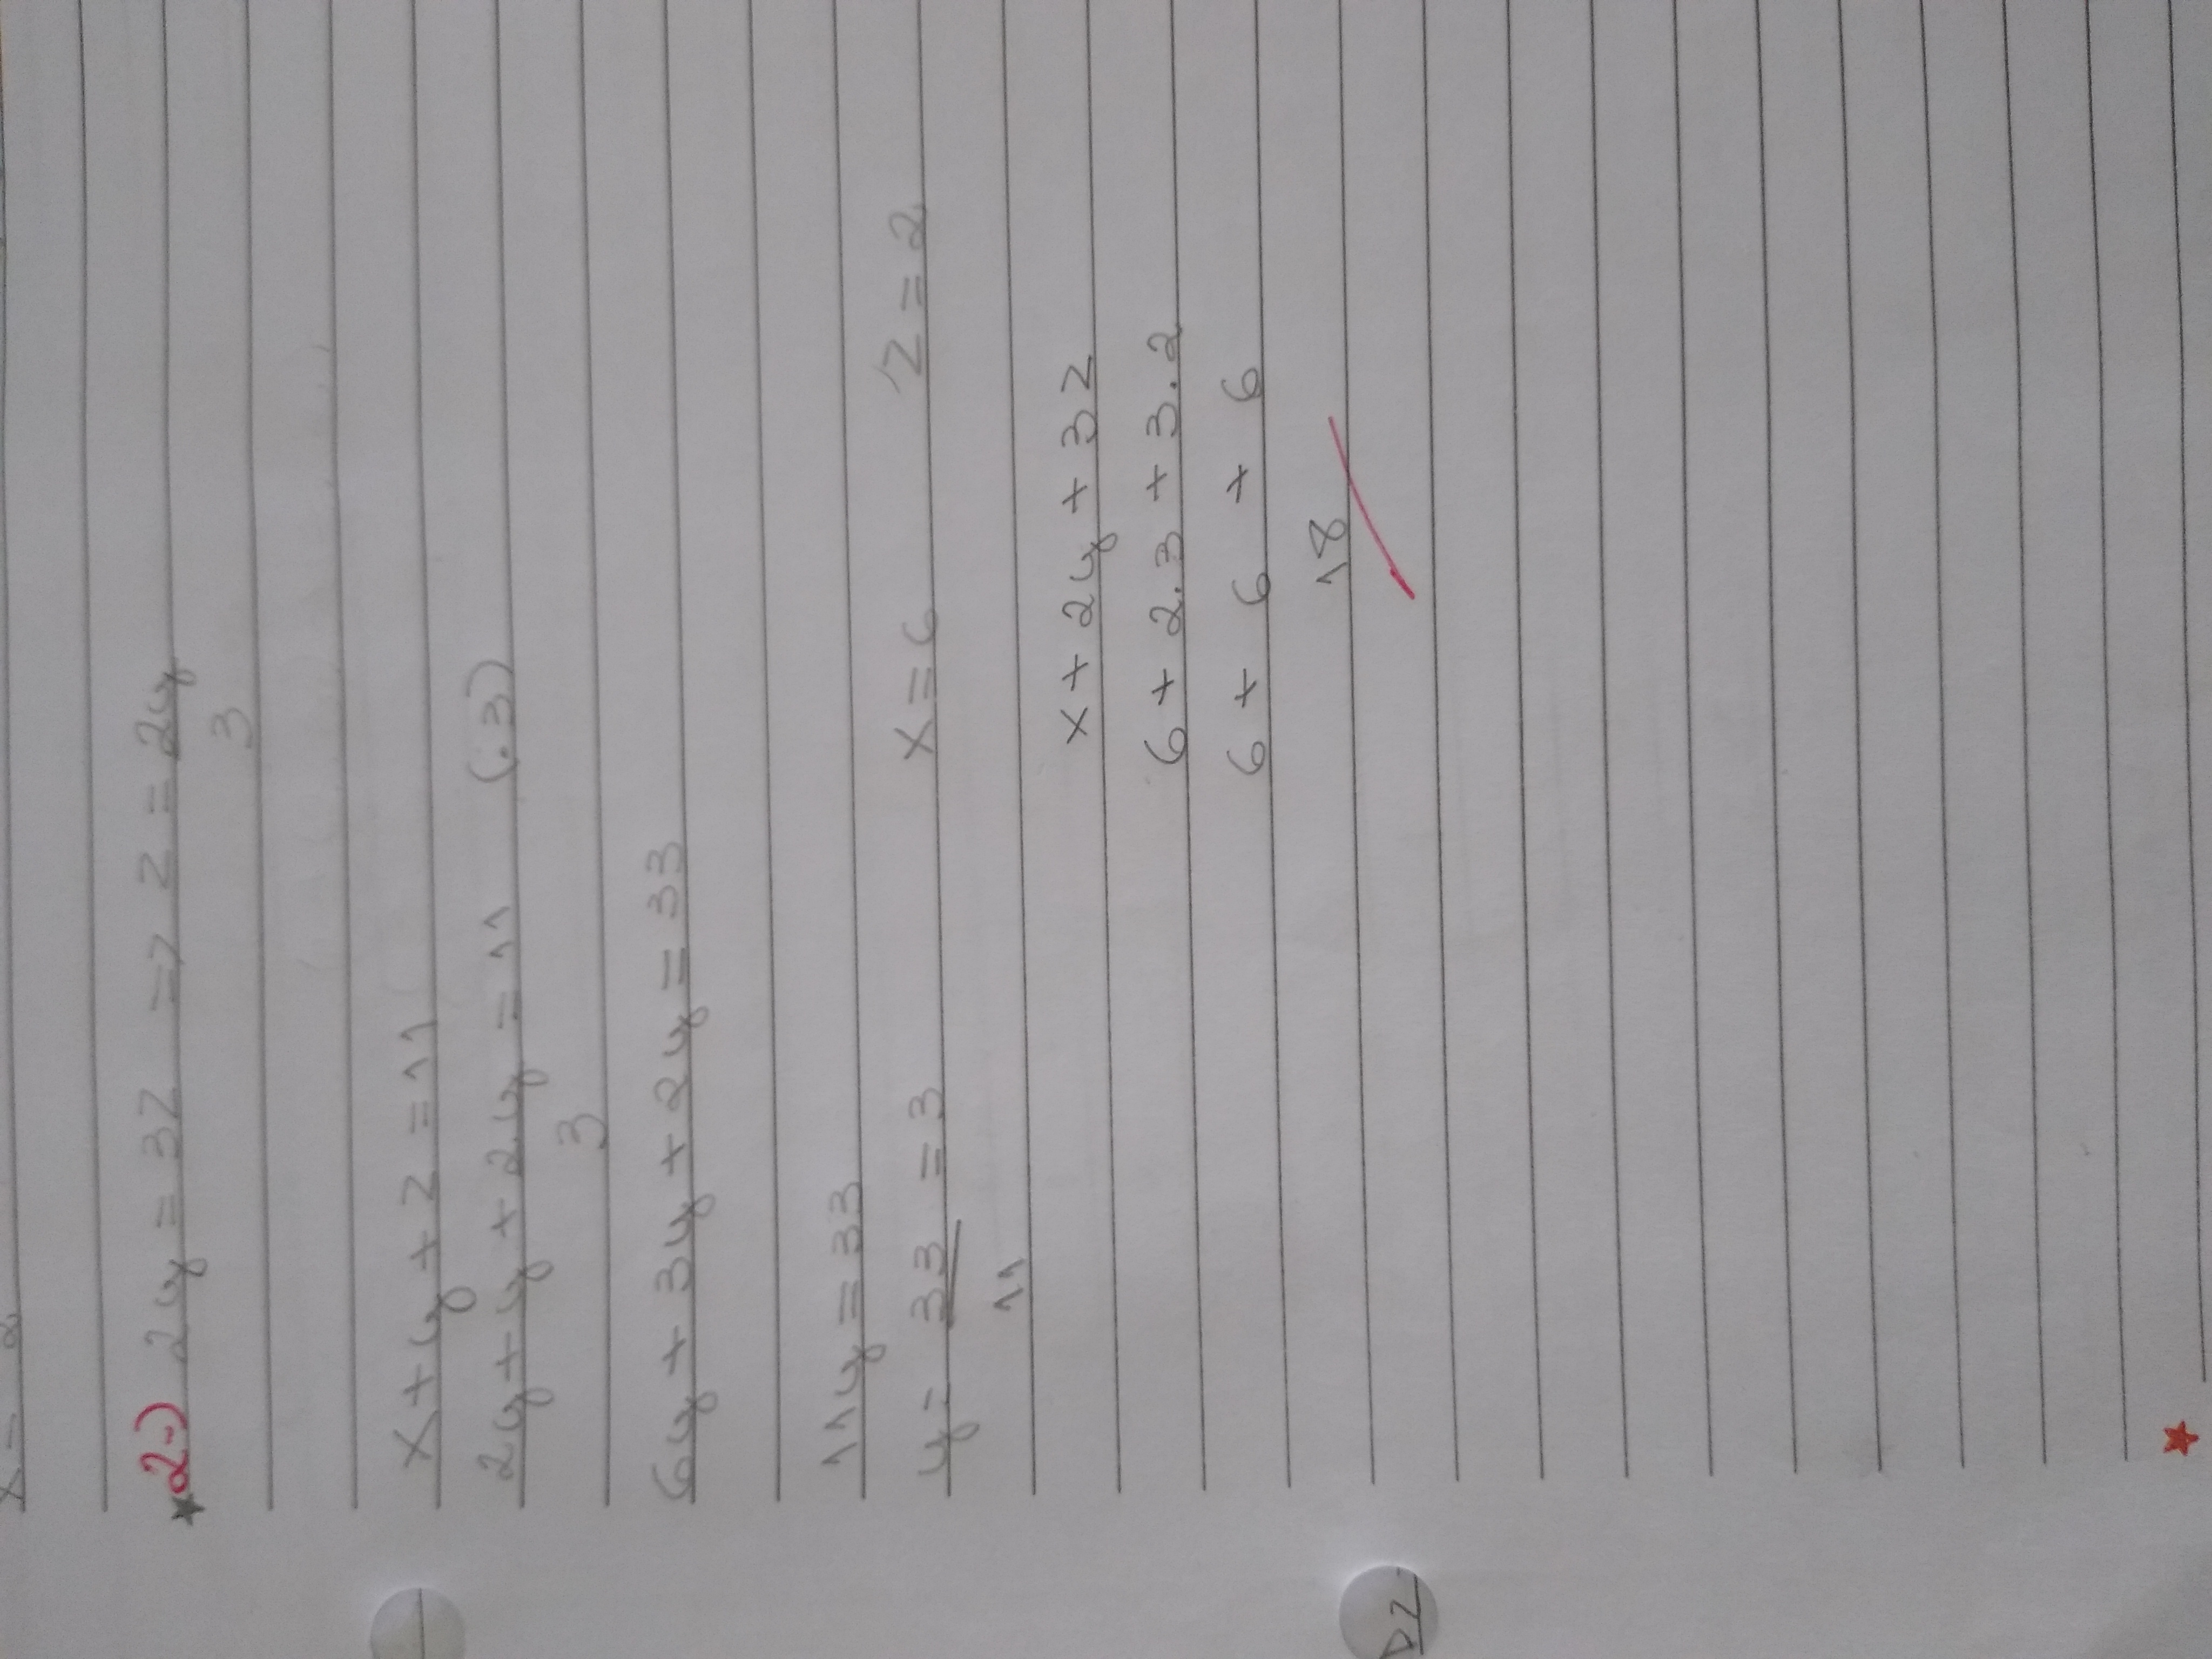 x = 2
2-) 2y = 3z => z = 2y
3
x + y + z = 11
2y + y + 2y = 11 (.3)
3
6y + 3y + 2y = 33
11y = 33
y = 33 = 3 x = 6 z = 2
11
x + 2y + 3z
6 + 2.3 + 3.2
6 + 6 + 6
18